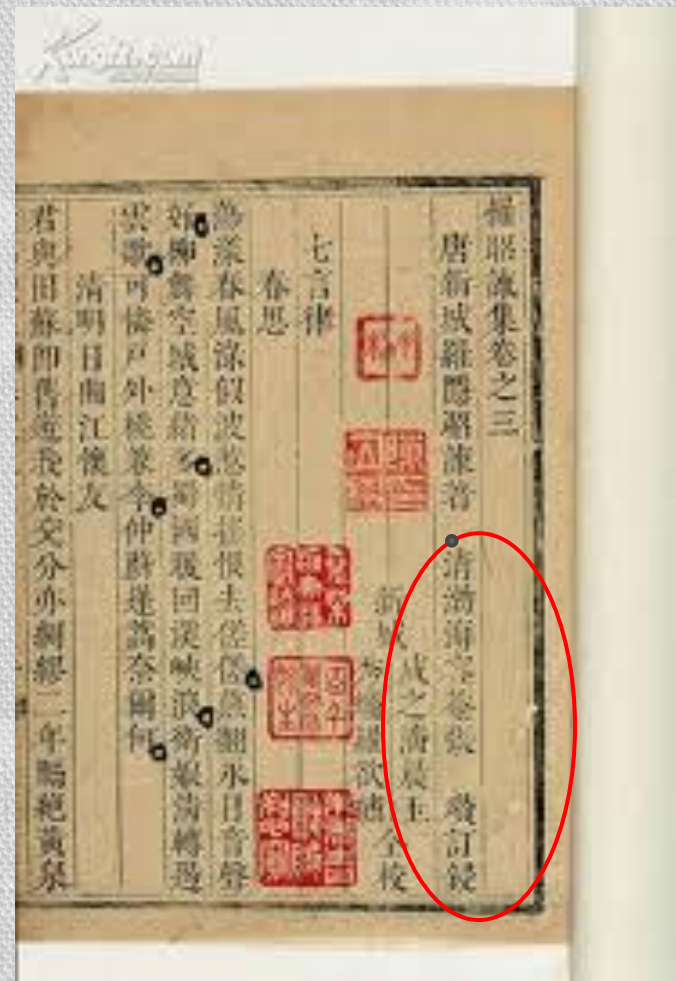 羅昭諫集卷之三
唐新城羅隱昭諫著 清渤海宇菴張 瓚訂鋟
新城 成之潘晨玉 仝校
七言律
春思
蕩漾春風淥似波惹情搖恨去傞傞燕翻永日音聲
好柳舞空城意緒多蜀國暖回溪峽浪衛娘清轉遏
雲歌可憐戶外桃兼李仲蔚蓬蒿奈爾何
清明日曲江懷友
君與田蘇即舊遊我於交分亦綢繆二年隔絕黃泉